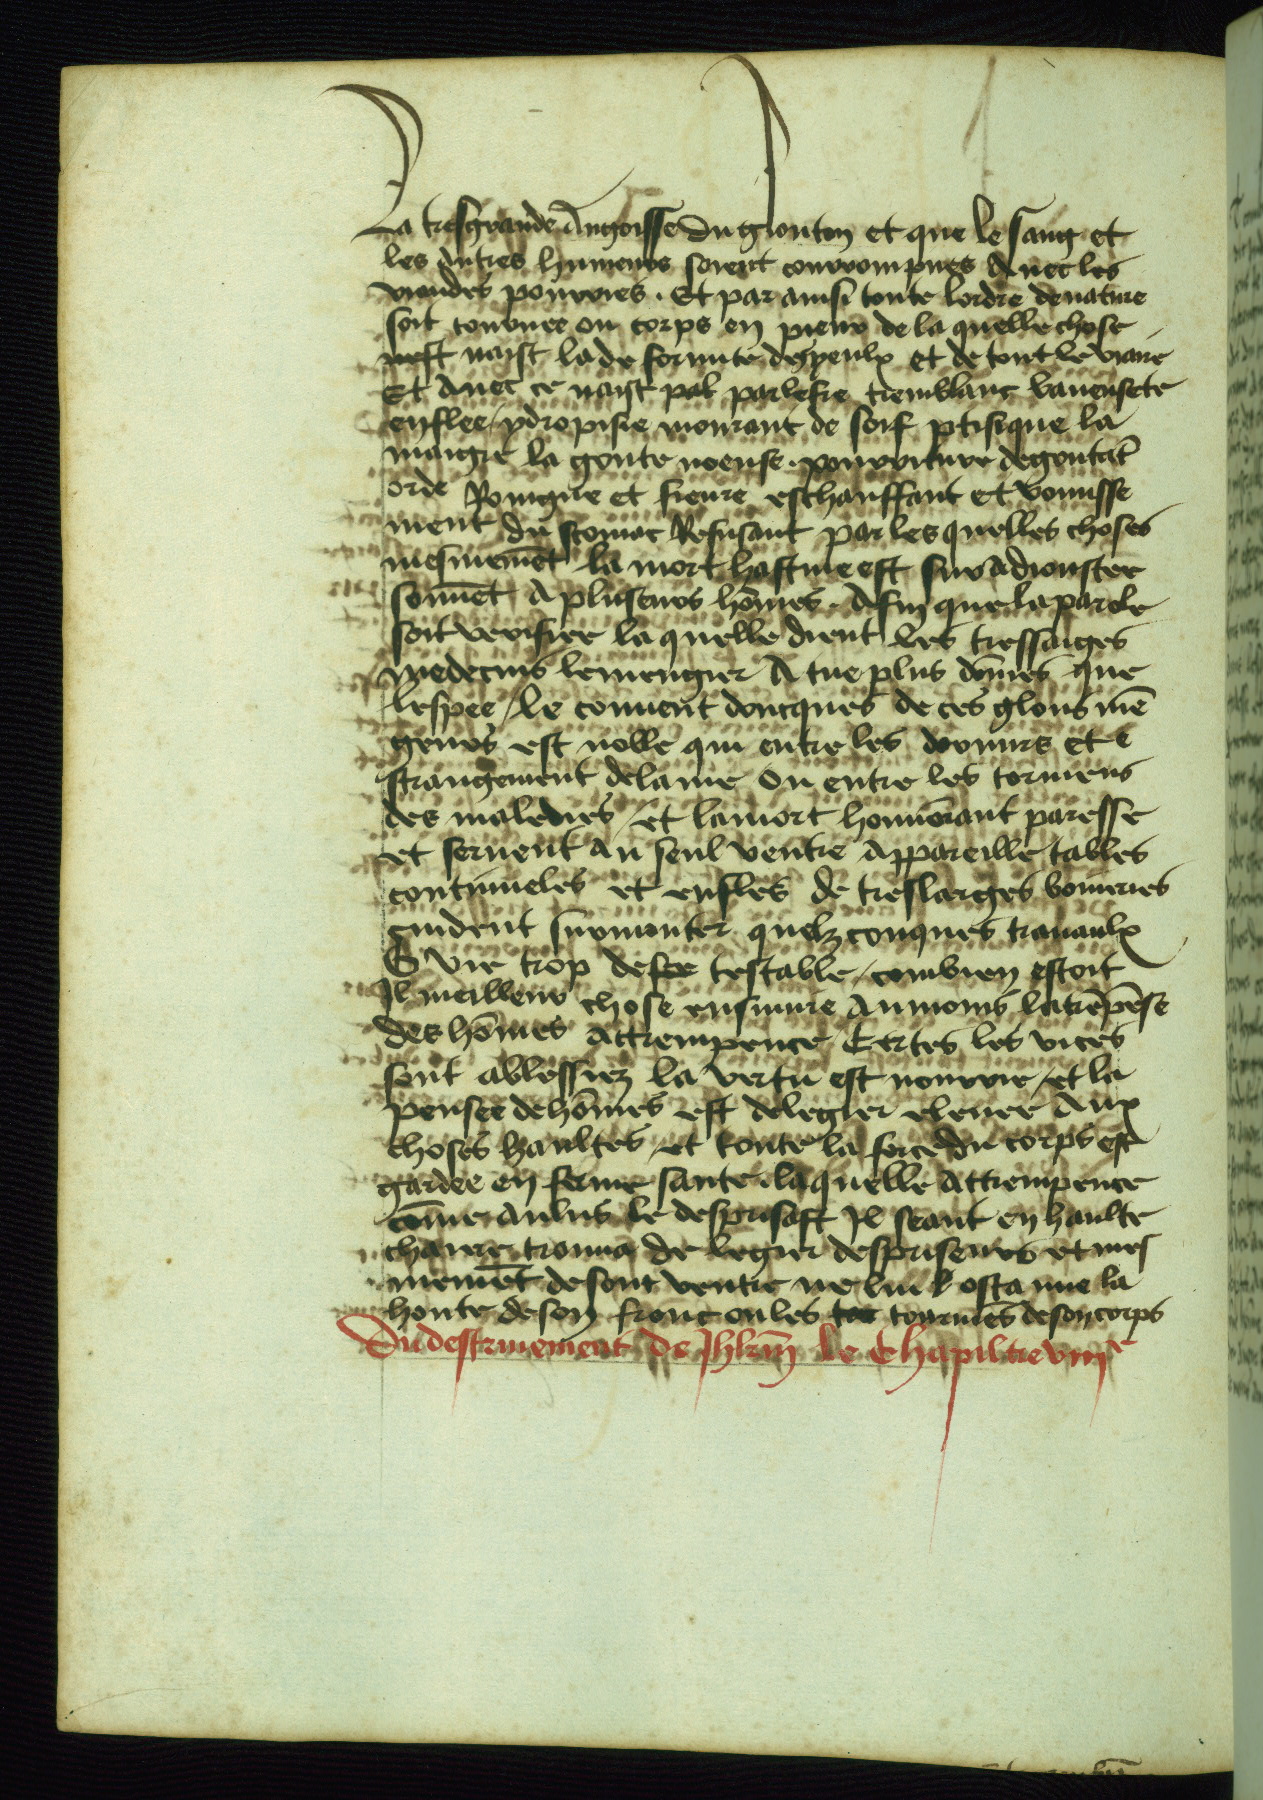 La tresgrande Angoisse du glouton et que le sang et
les Autres humeurs soient courrompues Avec les
viandes pourries. Et par ainsi toute lordre de nature
soit tournee ou corps en pieur de la quelle chose
naist la de formite des yeulx et de tout le viaire
Et Avec ce naist pal parlesie tremblant baveusete
enflee / ydropisie mourant de soif ptisique la
maigre la goute noeuse. pourriture degoutãt
orde Rouigne et fievre eschauffant et vomisse
ment du stomac Refusant par les quelles choses
mesmemẽt la mort hastive est sur Adioustee
souvẽt A pluseurs hõmes. Afin que la parole
soit verifiee la quelle dient les tressaiges
medecins le mengier A tue plus dõmes que
lespee / le convent doncques de ces glous mẽ
geurs est nolle qui entre les et e
strangement de la vie ou entre les tormens
des maledies / et la mort honnorant paresse
et servent Au seul ventre Appareille tables
continueles et enfles de treslarges
cuident surmonter quelz conques travaulx
O vie trop de testable / combien estoit
Il meilleur chose ensuivre Aumoins
des hõmes Attrempence Certes les vices
sont ablessiez la vertu est nourrie / et la
pensee de hõmes est de legier elevee Aux
choses haultes / et toute la force du corps est
gardee en ferme sante. la quelle Attrempence
cõme Aulus le desprisast Il seant en haulte
chaiere trouva de legier despriseurs et mes
memẽt de sont ventre ne lui osta mie la
honte de son front ou les tourmẽs de son corps
Du destruiement de Jhlrm̃ le Chapiltre viiie